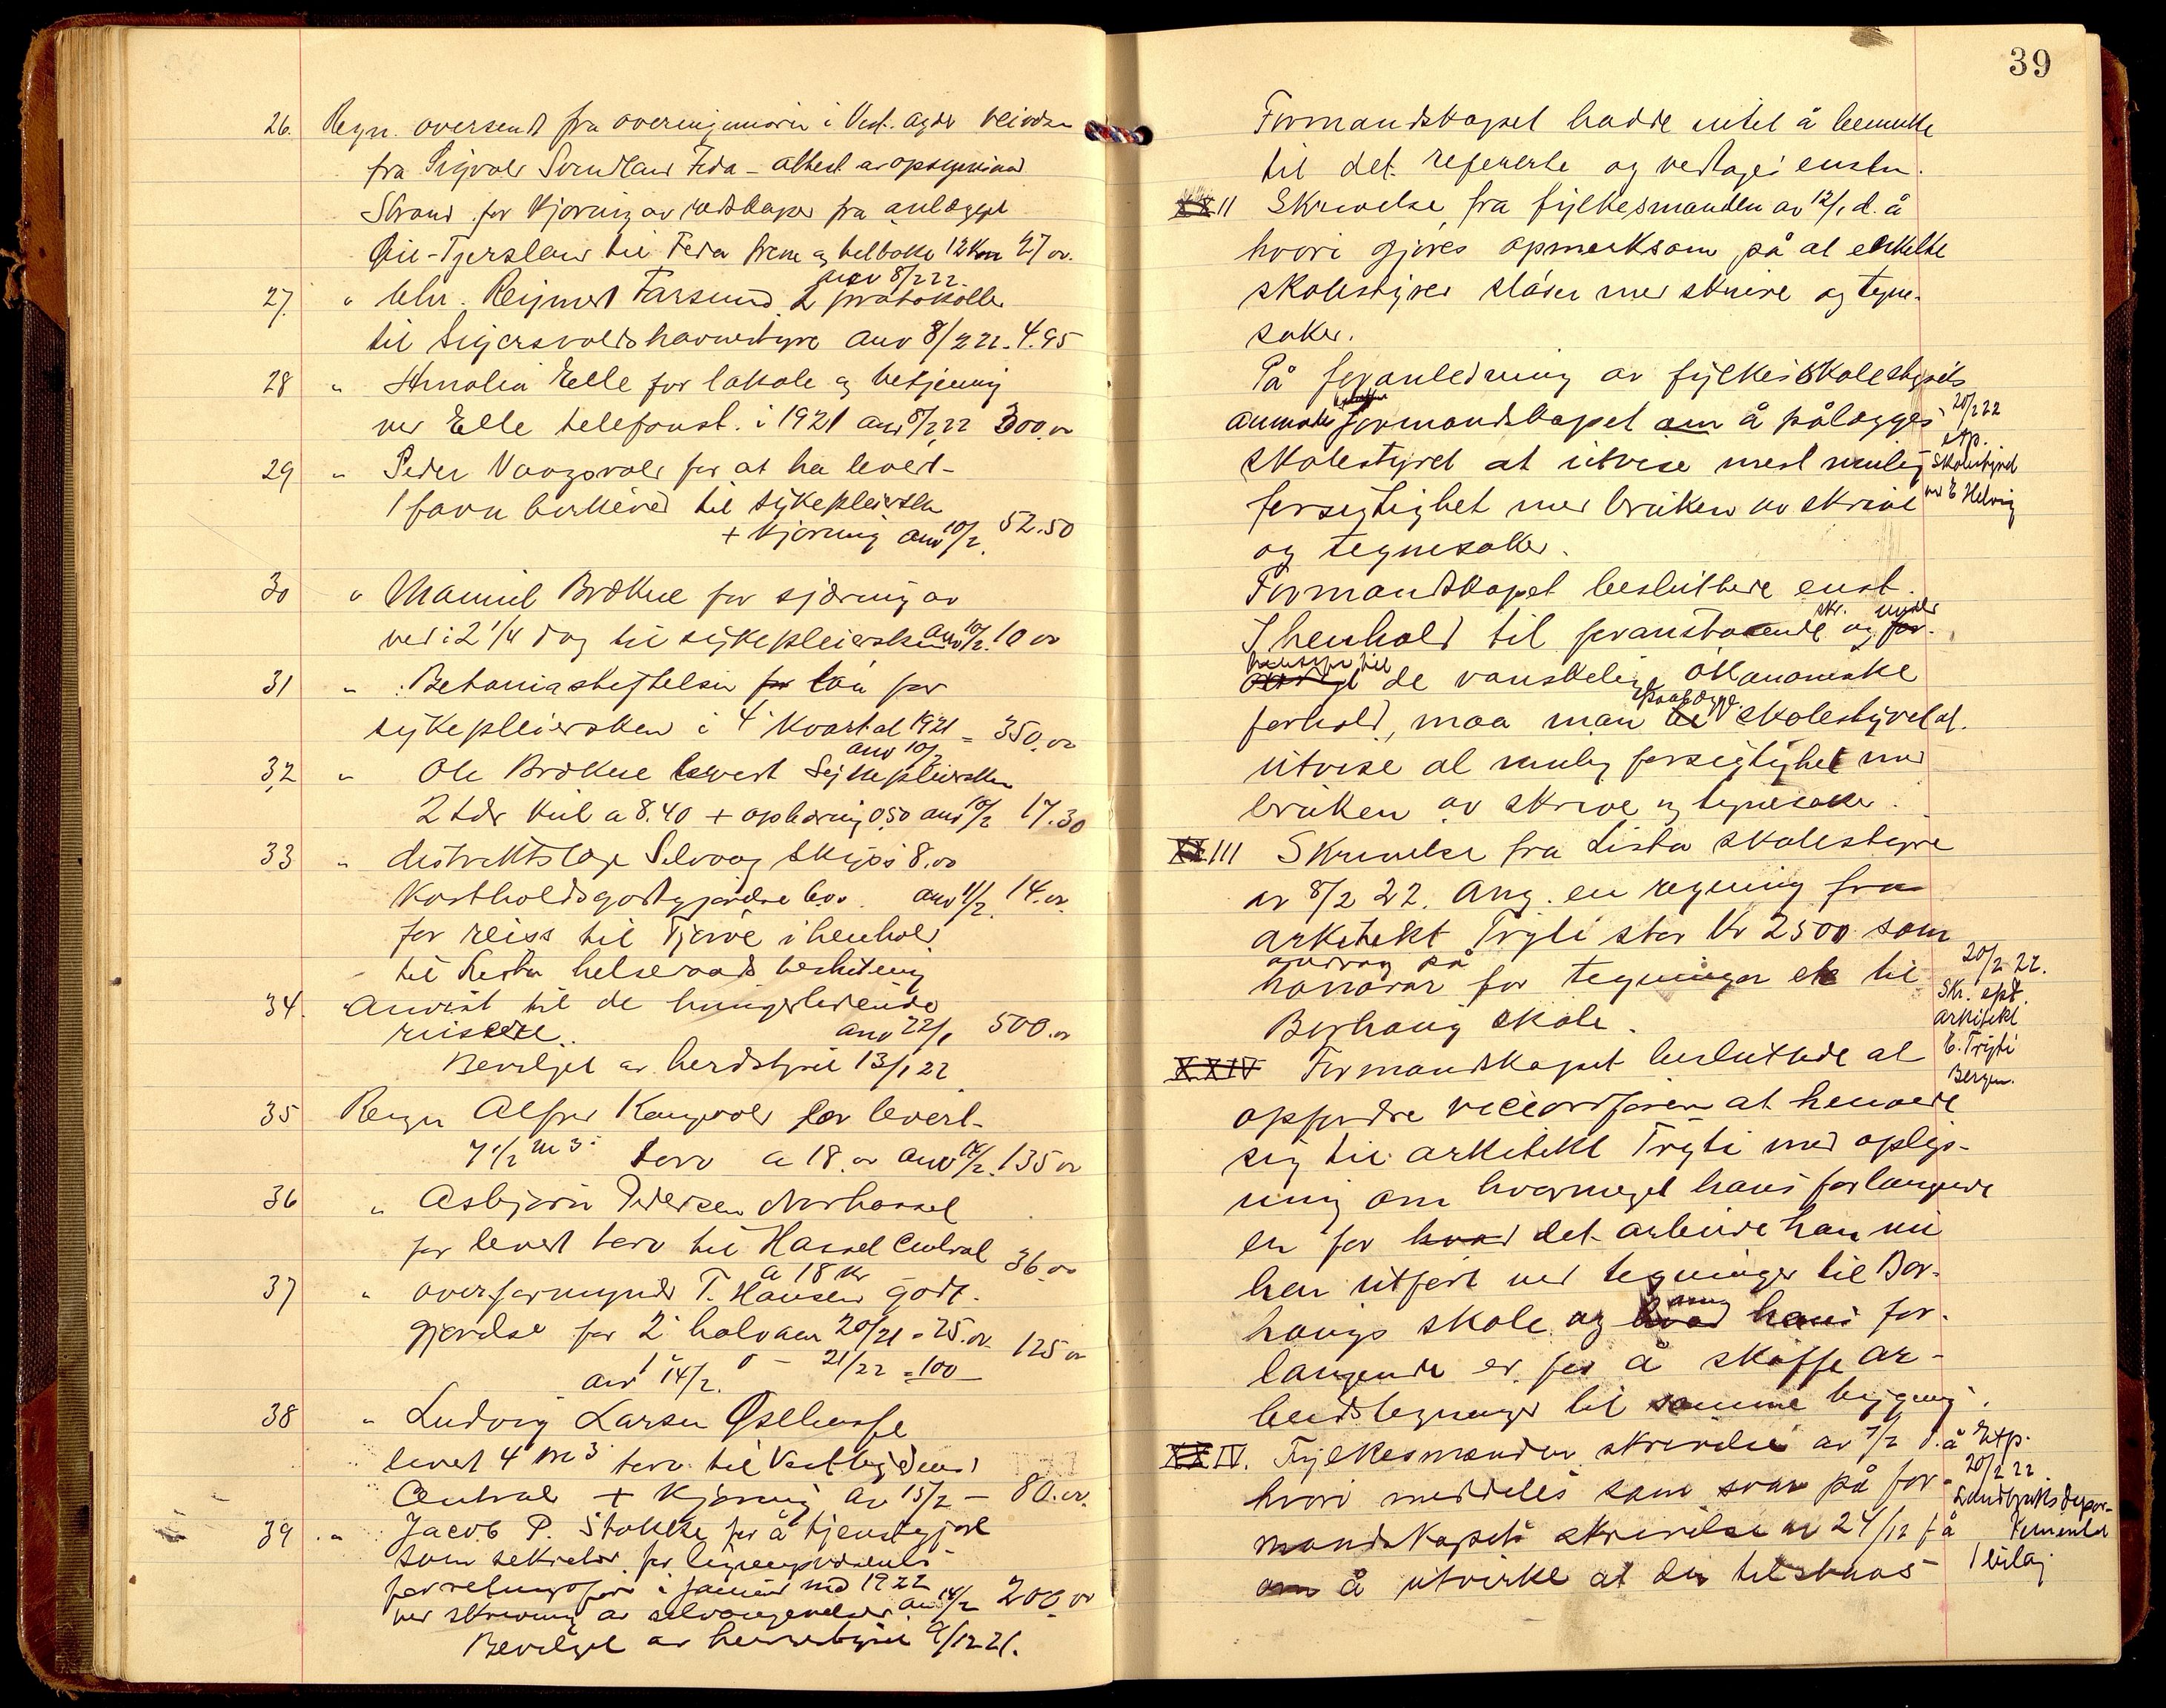 26. Regn. oversendt fra overingeniøren i Vest-Agder veivæsen
fra Sigvald Sundland Feda - attest av opsynsmand
Strand for kjøring av redskaper fra anlægget
til Feda frem og tilbake 12 km 27 00
anv 8/2 22
27. " Chr. Reymert Farsund 2 protokoller
til Sigersvolds havnestyre anv 8/2 22. 4.95
28 " Amalia Elle for lokale og betjening
ved Elle telefonst. i 1921 anv 8/2 22 300.00
29 " Peder Vaagsvold for at ha levert
1 favn birkeved til sykepleiersken
+ kjøring anv 10/2. 52.50
30 " Brækne for sjæring av
ved i 2 1/4 dag til sykepleiersken anv 10/2. 10 00
31 " Betaniastiftelsen for løn for
sykepleiersken i 4. kvartal 1921 = 350.00
anv 10/2
32 " Ole Brækne levert Sykepleiersken
2 tdr kul a 8.40 + opbæring 0.50 anv 10/2 17.30
33 " distriktslæge Selvaag skyss 8.00
Kostholdsgodtgjørelse 6.00. anv 11/2. 14.00
for reise til Tjørve i henhold
til Lista helseraads beslutning
34. Anvist til de hungerlidende
russere. anv 22/1 500.00
Bevilget av herdstyret 13/1 22
35 Regn Alfred Kangevold for levert
7 1/2 m3 torv a 18.00 anv 14/2. 135 00
36 " Asbjørn Pedersen Norhassel
for levert torv til Hassel Central 36.00
a 18 kr
37 " overformynder T. Hansen godt-
gjørelse for 2. halvaar 20/21 = 25.00 125 00
1. " - 21/22 = 100
anv 14/2.
38 " Ludvig Larsen Østhassel
levert 4 m3 torv til Vestbygdens
Central + kjøring av 15/2 - 80.00.
39. " Jacob P. Stokke for å tjenstgjøre
som sekretær for ligningsvæsenets
forretningsfører i januar md 1922
ved skrivning av selvangivelser anv 14/2 200.00
Bevilget av herredstyret 9/12 21.
39
Formandskapet hadde intet å bemerke
til det refererte og vedtages enst.
XXII Skrivelse fra fylkesmanden av 12/1 d. å
hvori gjøres opmerksom på at enkelte
skolestyrer sløser med skrive og tegne-
saker.
På foranledning av fylkesskolestyrets
anmodes formandskapet om å pålægges
skolestyret at utvise mest mulig
forsigtighet med bruken av skrive
og tegnesaker.
20/2 22
etp.
Skolestyret
ved E Helvig
Formandskapet besluttede enst.
skr. under
I henhold til foranstaaende og for-
hensyn til
de vanskelige økonomiske
paalægge
forhold, maa man skolestyret at
utvise al mulig forsigtighet med
bruken av skrive og tegnesaker.
XXIII Skrivelse fra Lista skolestyre
av 8/2 22. Ang. en regning fra
arkitekt Tryti stor Kr 2500 som
andrag på
honorar for tegninger etc til
Borhaug skole.
20/2 22.
Skr. expt.
arkitekt
E. Tryti
Bergen.
XXIV Formandskapet besluttede at
opfordre viceordføren at henvende
sig til arkitekt Tryti med oplys-
ning om hvormeget hans forlangende
er for hvad det arbeide han nu
har utført ved tegninger til Bor-
haugs skole og hvad hans for-
langende er for å skaffe ar-
beidstegninger til samme bygning.
XXIV. Fylkesmanden skrivelse av 7/2 d.å
hvori meddeles som svar på for-
mandskapets skrivelse av 24/12 f å
om å utvirke at der tilstaaes
Etp.
20/2 22.
Landbruksdepar-
tementet
1 bilag